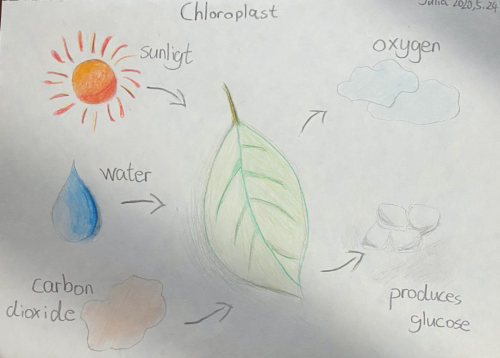 Chloroplast
Julia 2020,5.24
sunligt
oxygen
water
carbon
dioxide
produces
glucose